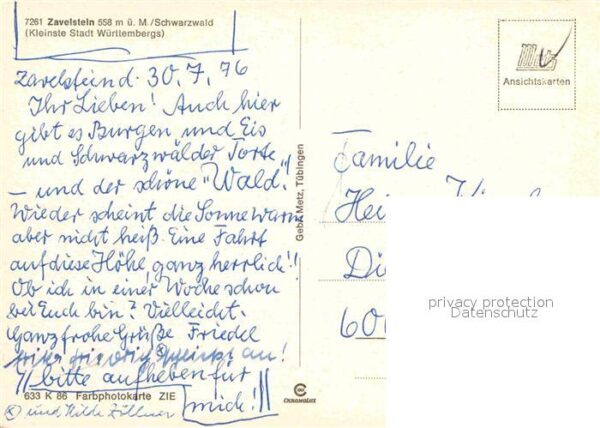 7261 Zavelstein 558 m ü. M./Schwarzwald
(Kleinste Stadt Württembergs)
Zavelstein d. 30.7.76
Ihr Lieben! Auch hier
gibt es Burgen und Eis
und Schwarzwälder Torte
– und der schöne "Wald"!
Wieder scheint die Sonne warm
aber nicht heiß. Eine Fahrt
auf diese Höhe ganz herrlich!!
Ob ich in einer Woche schon
bei Euch bin? Vielleicht.
Ganz frohe Grüße Friedel
an!
// bitte aufheben für
mich!!
633 K 86 Farbphotokarte ZIE
und Hilde Zöllner
Gebr. Metz, Tübingen
Metz
Ansichtskarten
Familie
Hei
Di
600
privacy protection
Datenschutz
CHROMOLUX